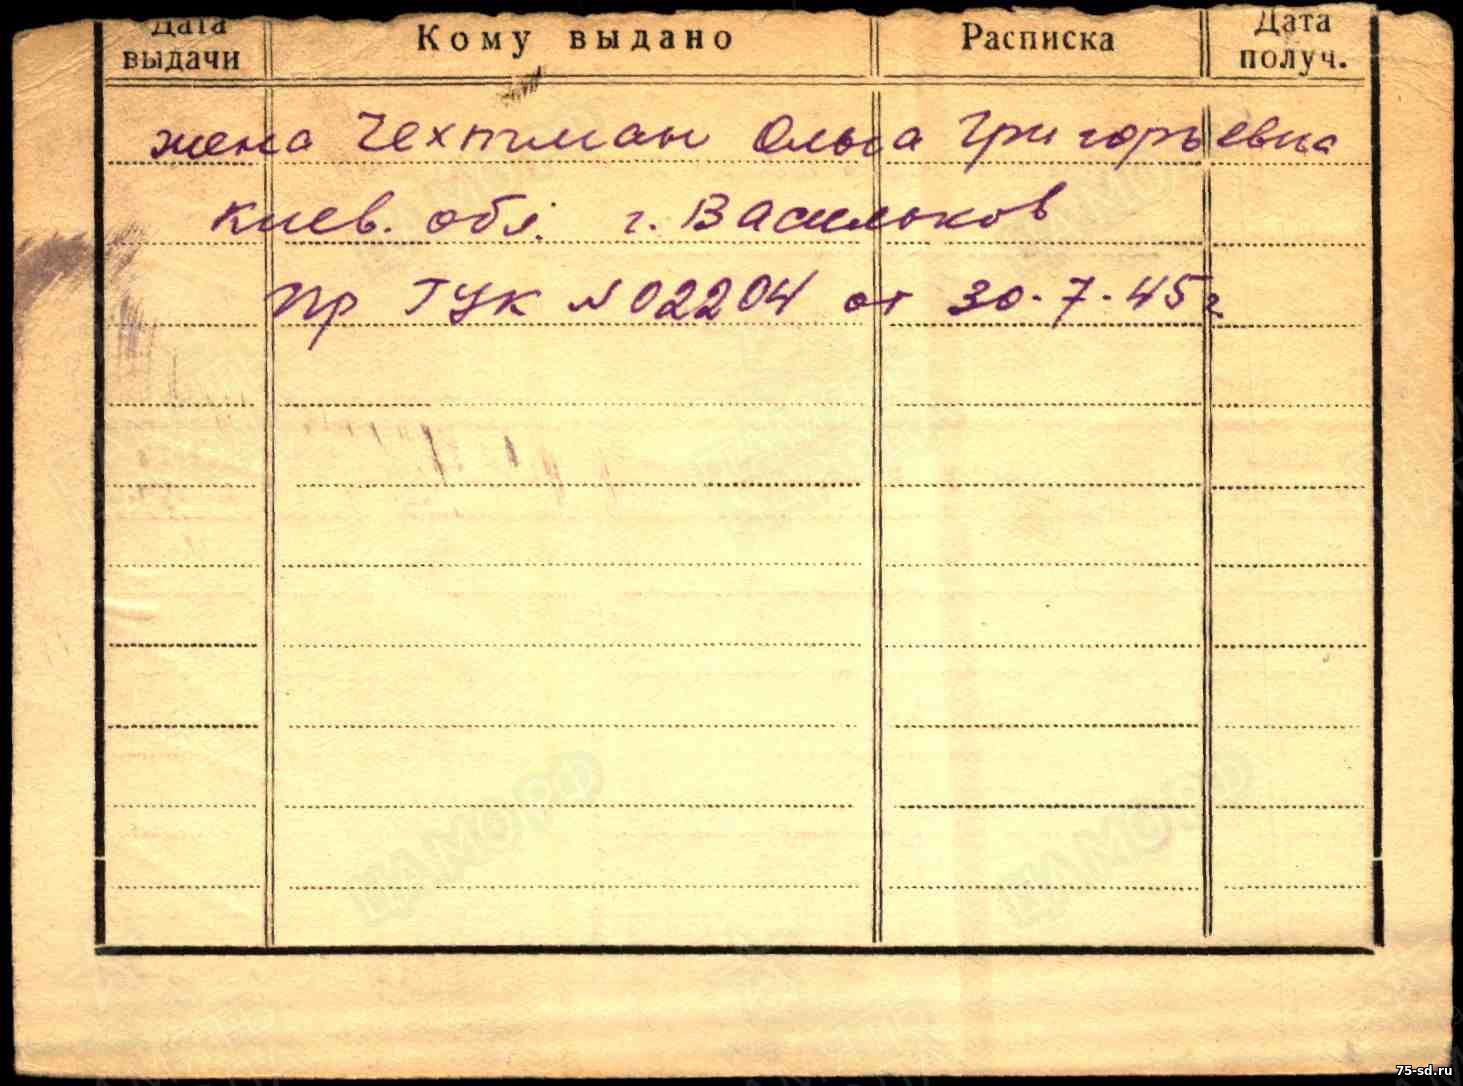 Дата выдачи Кому выдано Расписка Дата получ.
жена Чехтман Ольга Григорьевна
Киев. обл. г. Васильков
Пр ГУК № 02204 от 30.7.45 г
ЦАМО РФ
ЦАМО РФ
75-sd.ru